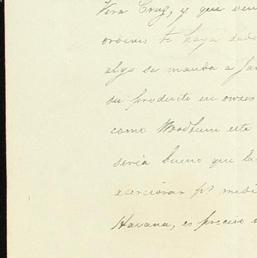 Vera Cruz, y que
ordenes te haya dado
algo se manda a
su producto en
como Woodhum este
sería bueno que la
por medi
Havana, es preciso